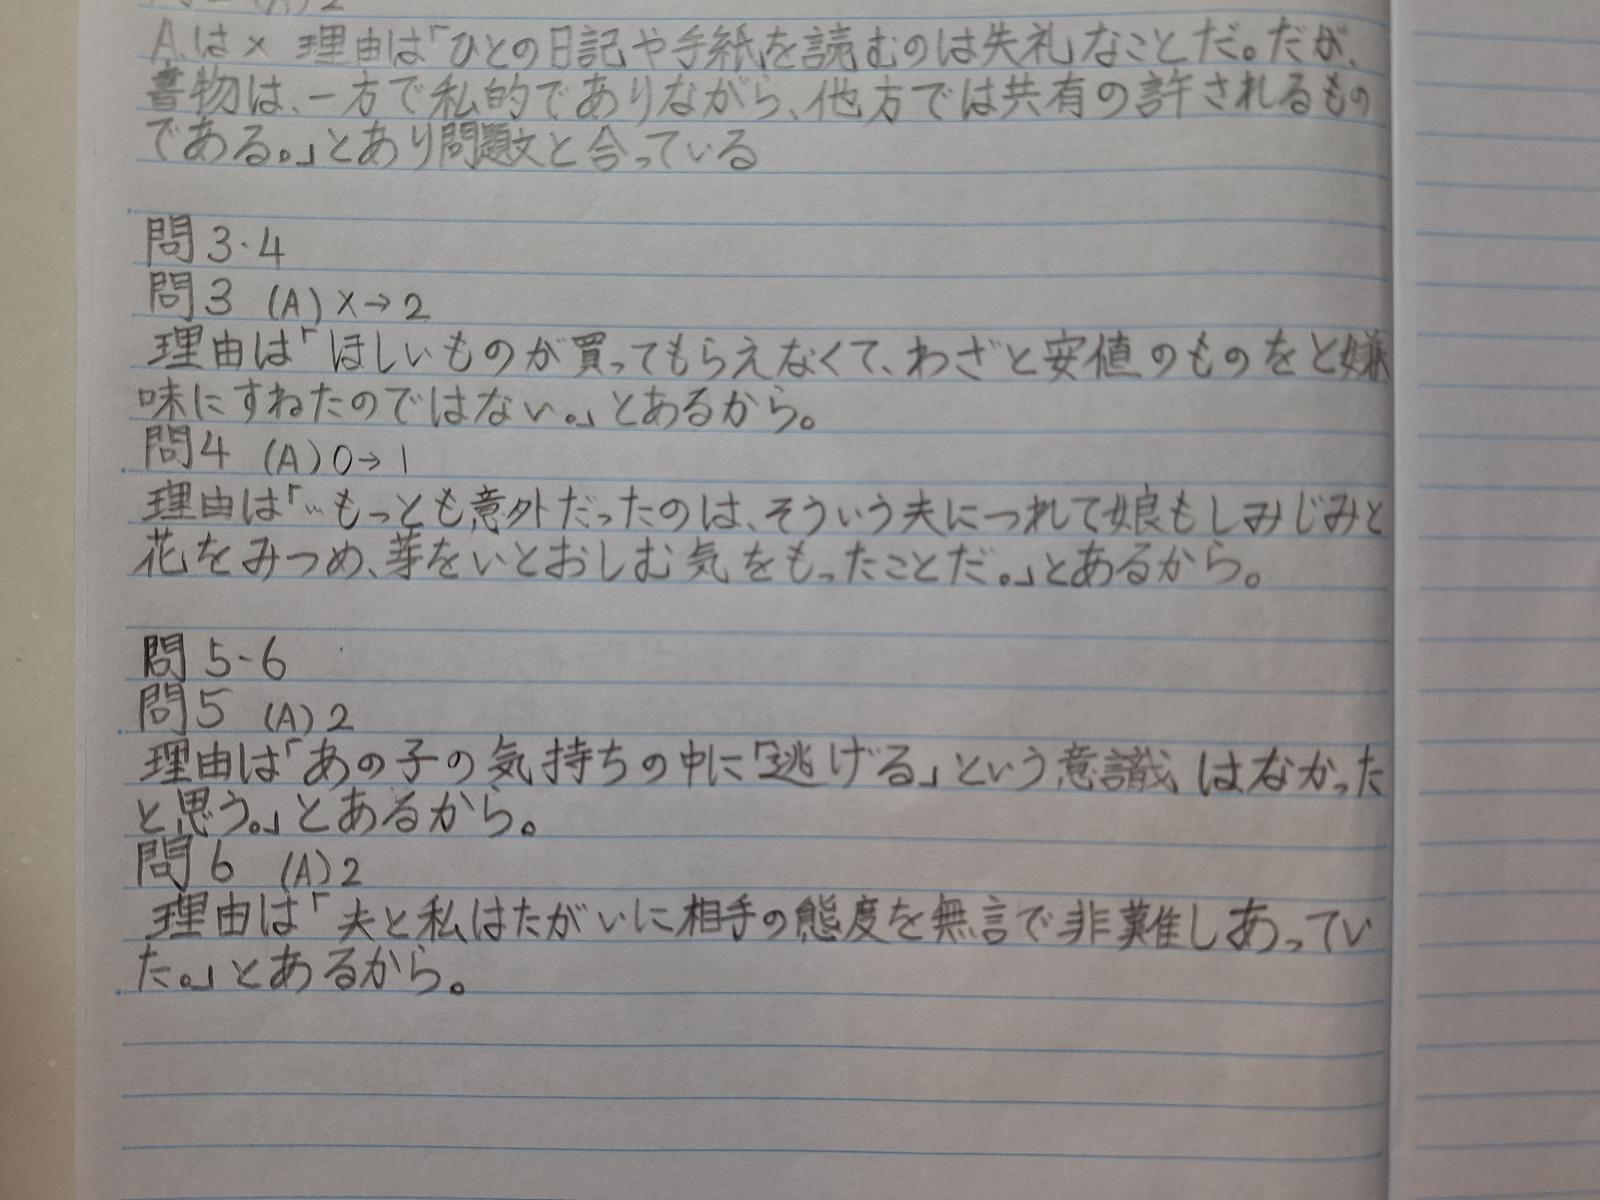 (A) 2
A.は× 理由は「ひとの日記や手紙を読むのは失礼なことだ。だが、
書物は、一方で私的でありながら、他方では共有の許されるもの
である。」とあり問題文と合っている
問3·4
問3 (A)×→2
理由は「ほしいものが買ってもらえなくて、わざと安値のものをと嫌
味にすねたのではない。」とあるから。
問4 (A)0→1
理由は「…もっとも意外だったのは、そういう夫につれて娘もしみじみと
花をみつめ、芽をいとおしむ気をもったことだ。」とあるから。
問5-6
問5 (A)2
理由は「あの子の気持ちの中に「逃げる」という意識はなかった
と思う。」とあるから。
問6 (A)2
理由は「夫と私はたがいに相手の態度を無言で非難しあってい
た。」とあるから。